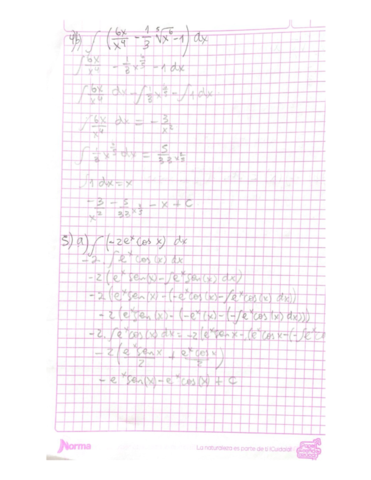 4b) ∫ (6x/x⁴ - 1/3 ⁵√x⁶ - 1) dx
∫ 6x/x⁴ - 1/3 x - 1 dx
∫ 6x/x⁴ dx - ∫ 1/3 x - ∫ 1 dx
∫ 6x/x⁴ dx = - 3/x²
∫ 1/3 x dx = 5/33
∫ 1 dx = x
- 3/x² - 5/33 - x + C
5) a) ∫ (-2eˣ cos x) dx
-2 · ∫ eˣ cos(x) dx
-2 (eˣ sen(x) - ∫ eˣ sen(x) dx)
-2 (eˣ sen(x) - (-eˣ cos(x) - ∫ eˣ cos(x) dx))
-2 (eˣ sen(x) - (-eˣ(x) - (-∫ eˣ cos(x) dx)))
-2 · ∫ eˣ cos(x) dx = -2 (eˣ sen x - (eˣ cos x - (-∫ eˣ
-2 (eˣ sen x/2 + eˣ cos x/2)
- eˣ sen(x) - eˣ cos(x) + C
Norma
La naturaleza es parte de ti ¡Cuídala!